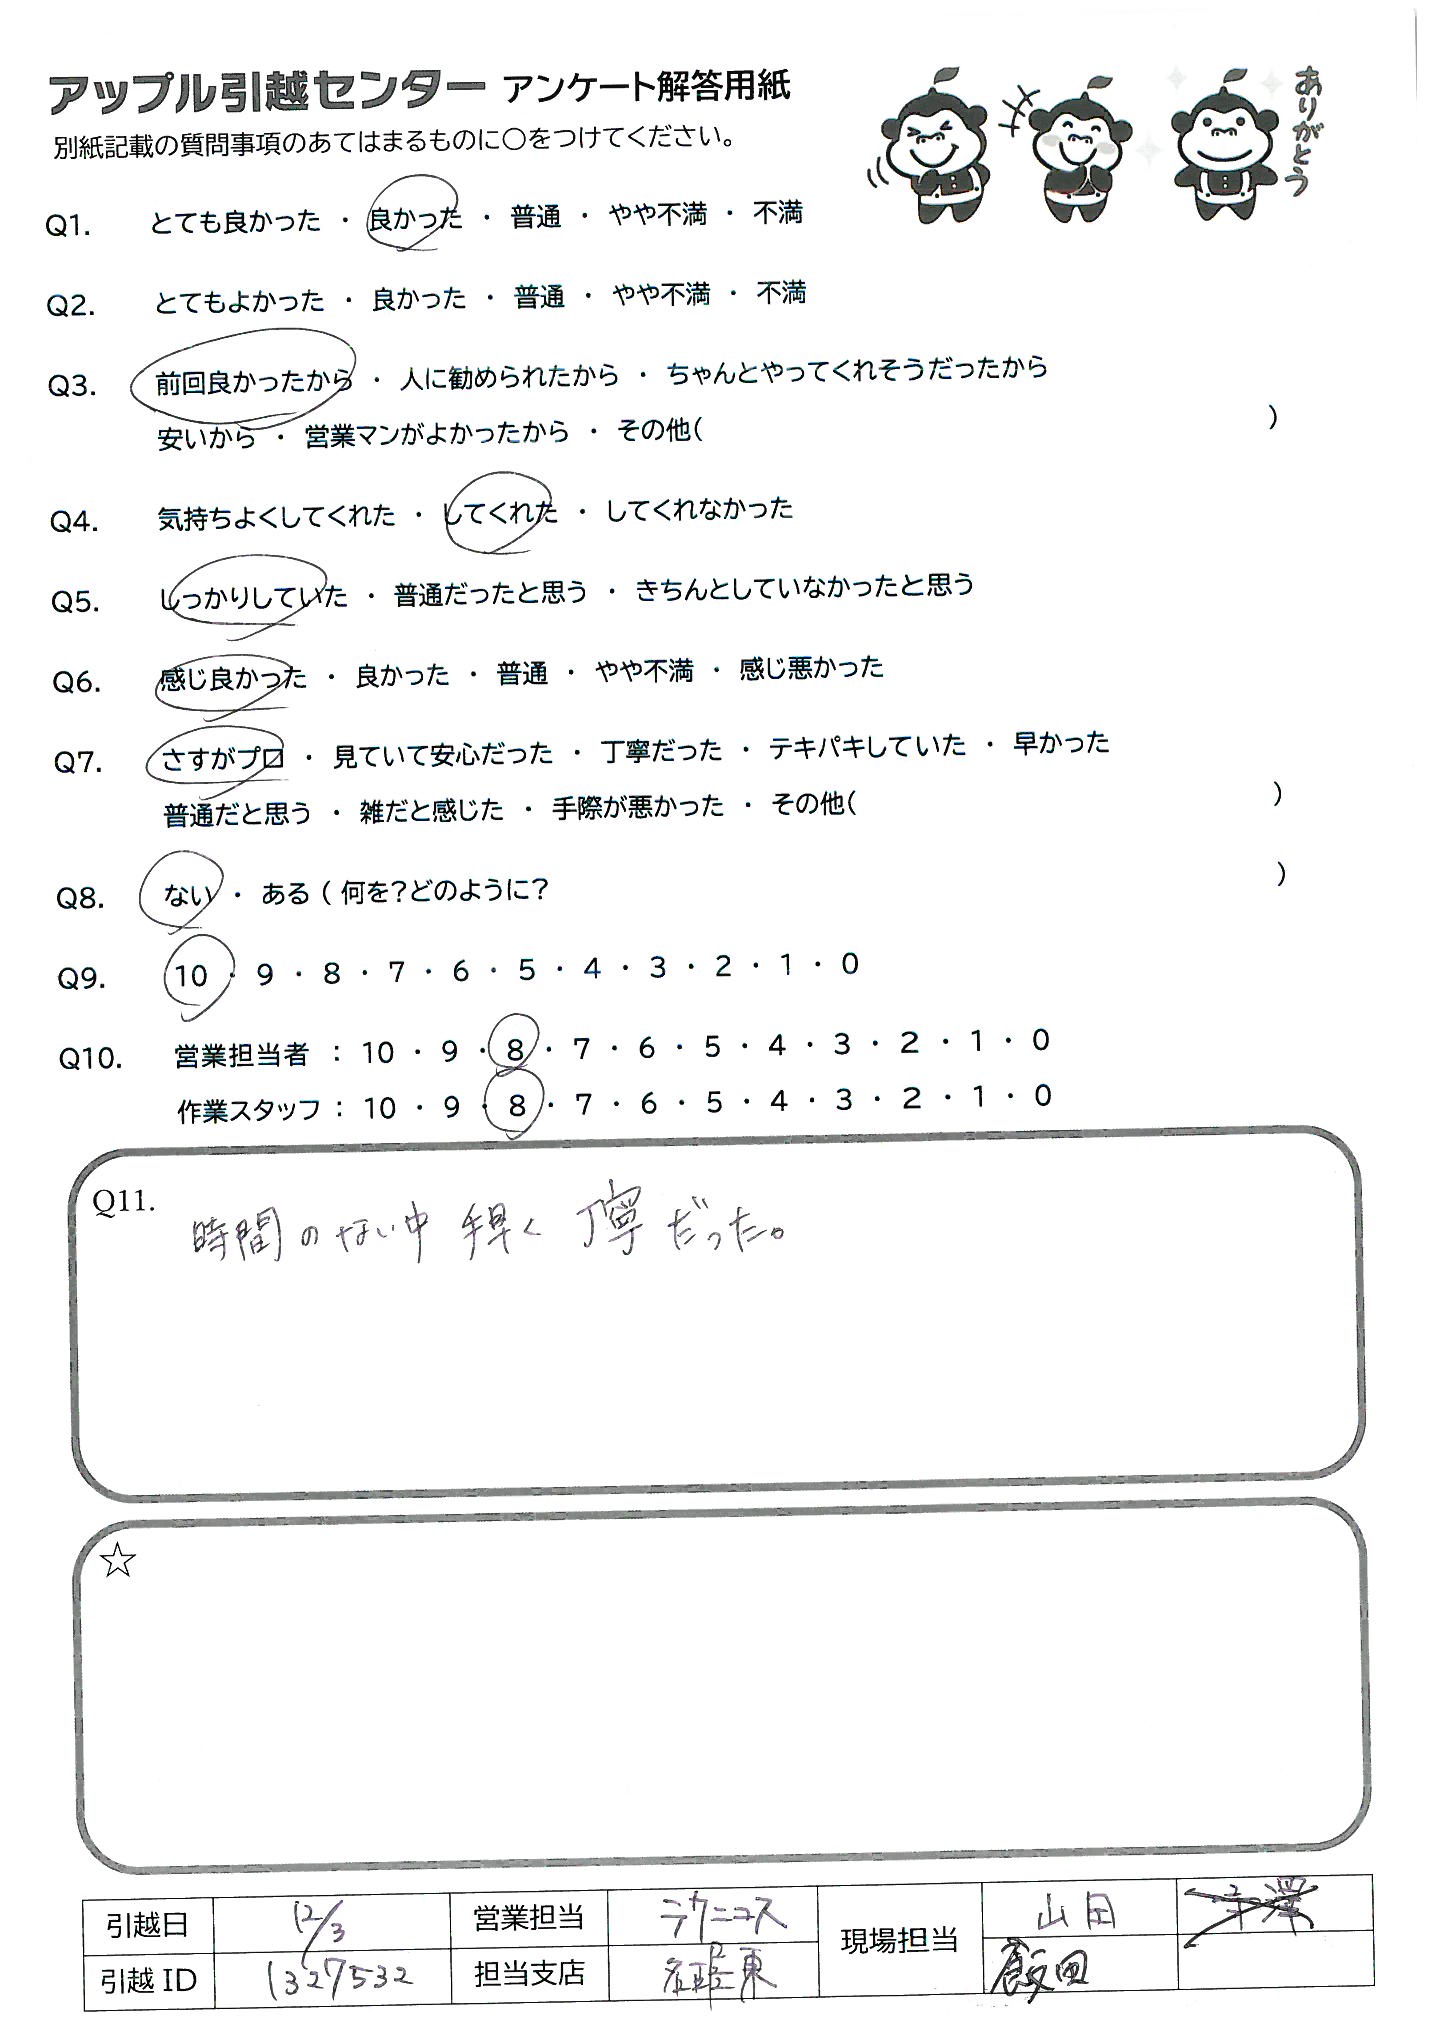 アップル引越センター アンケート解答用紙
ありがとう
別紙記載の質問事項のあてはまるものに○をつけてください。
Q1. とても良かった ・ 良かった ・ 普通 ・ やや不満 ・ 不満
Q2. とてもよかった ・ 良かった ・ 普通 ・ やや不満 ・ 不満
Q3. 前回良かったから ・ 人に勧められたから ・ ちゃんとやってくれそうだったから
安いから ・ 営業マンがよかったから ・ その他( )
Q4. 気持ちよくしてくれた ・ してくれた ・ してくれなかった
Q5. しっかりしていた ・ 普通だったと思う ・ きちんとしていなかったと思う
Q6. 感じ良かった ・ 良かった ・ 普通 ・ やや不満 ・ 感じ悪かった
Q7. さすがプロ ・ 見ていて安心だった ・ 丁寧だった ・ テキパキしていた ・ 早かった
普通だと思う ・ 雑だと感じた ・ 手際が悪かった ・ その他( )
Q8. ない ・ ある ( 何を?どのように? )
Q9. 10 ・ 9 ・ 8 ・ 7 ・ 6 ・ 5 ・ 4 ・ 3 ・ 2 ・ 1 ・ 0
Q10. 営業担当者 : 10 ・ 9 ・ 8 ・ 7 ・ 6 ・ 5 ・ 4 ・ 3 ・ 2 ・ 1 ・ 0
作業スタッフ : 10 ・ 9 ・ 8 ・ 7 ・ 6 ・ 5 ・ 4 ・ 3 ・ 2 ・ 1 ・ 0
Q11.
時間のない中 手早く 丁寧だった。
☆
引越日 12/3 営業担当 ラクニコス 現場担当 山田
引越 ID 1327532 担当支店 東 飯田